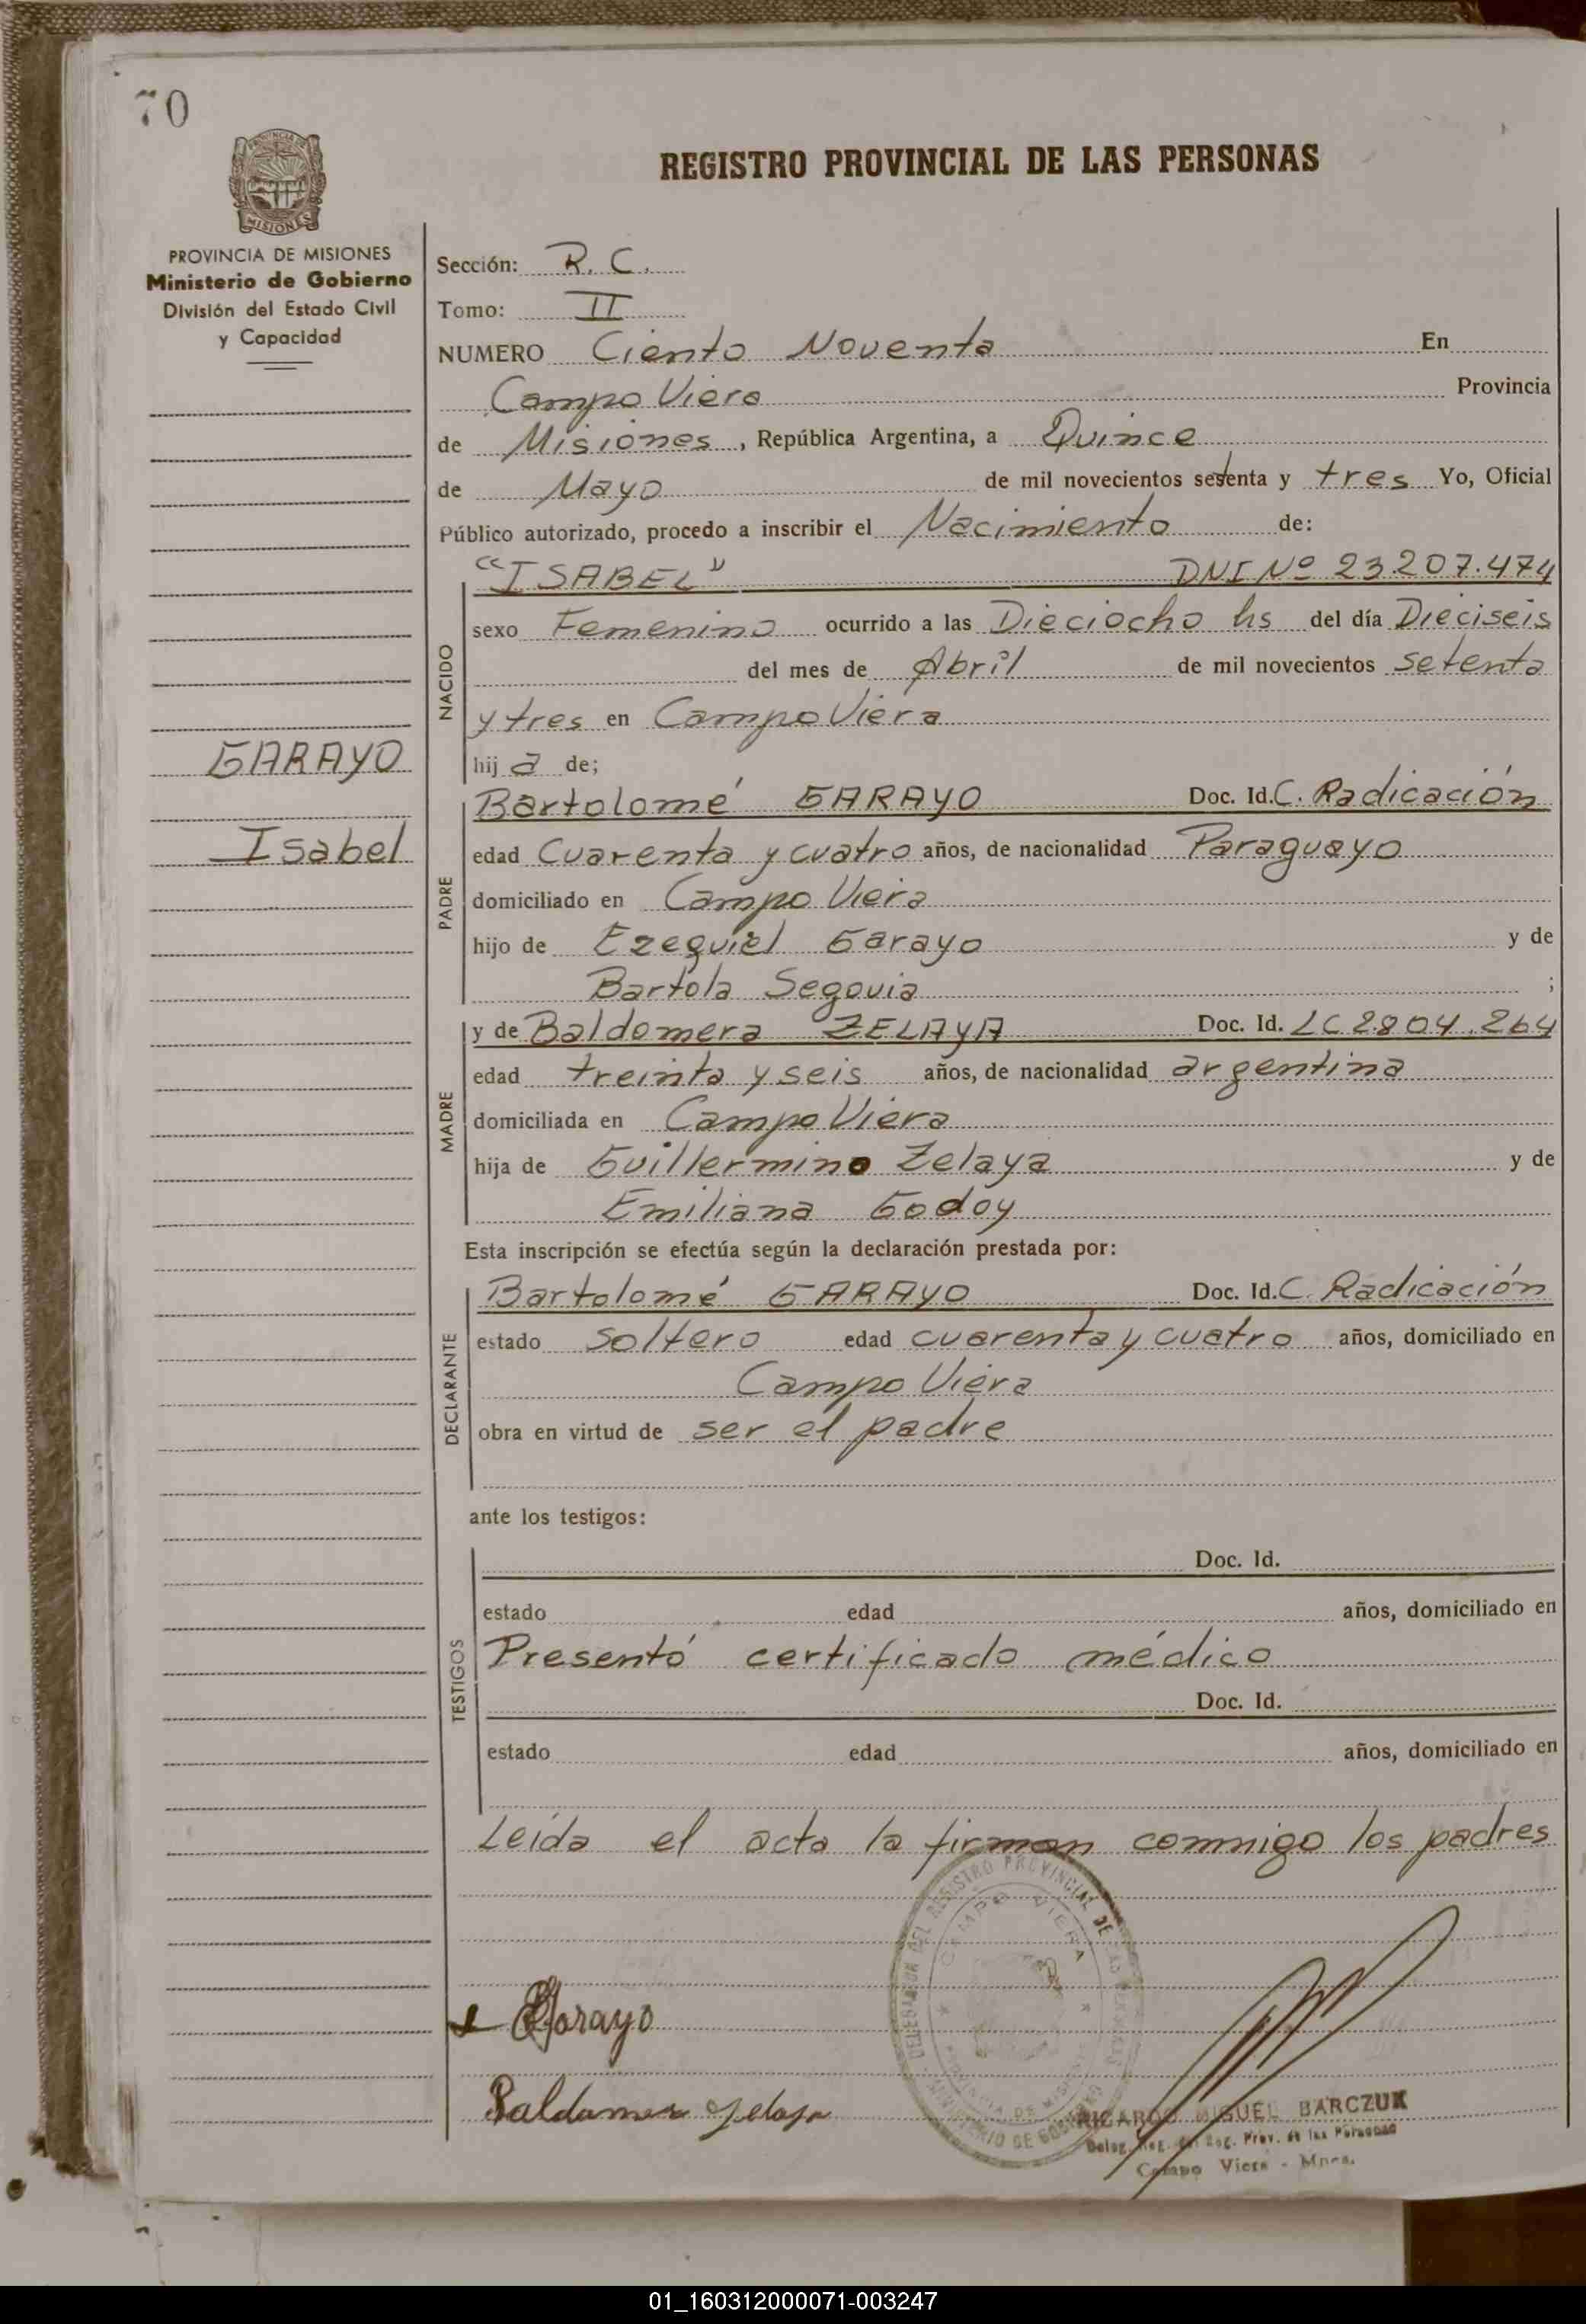 70
PROVINCIA DE MISIONES
Ministerio de Gobierno
División del Estado Civil
y Capacidad
GARAYO
Isabel
REGISTRO PROVINCIAL DE LAS PERSONAS
Sección: R. C.
Tomo: II
NUMERO Ciento Noventa En
Campo Viera Provincia
de Misiones, República Argentina, a Quince
de Mayo de mil novecientos setenta y tres Yo, Oficial
Público autorizado, procedo a inscribir el Nacimiento de:
NACIDO
"ISABEL" DNI Nº 23207.474
sexo Femenino ocurrido a las Dieciocho hs del día Dieciseis
del mes de Abril de mil novecientos setenta
y tres en Campo Viera
hija de;
PADRE
Bartolomé GARAYO Doc. Id. C. Radicación
edad Cuarenta y cuatro años, de nacionalidad Paraguayo
domiciliado en Campo Viera
hijo de Ezequiel Garayo y de
Bartola Segovia ;
MADRE
y de Baldomera ZELAYA Doc. Id. LC 2.804.264
edad treinta y seis años, de nacionalidad argentina
domiciliada en Campo Viera
hija de Guillermino Zelaya y de
Emiliana Godoy
Esta inscripción se efectúa según la declaración prestada por:
DECLARANTE
Bartolomé GARAYO Doc. Id. C. Radicación
estado soltero edad cuarenta y cuatro años, domiciliado en
Campo Viera
obra en virtud de ser el padre
ante los testigos:
TESTIGOS
Doc. Id.
estado edad años, domiciliado en
Presentó certificado médico
Doc. Id.
estado edad años, domiciliado en
Leída el acta la firman conmigo los padres
DEL REGISTRO PROVINCIAL DE
CAMPO VIERA
Garayo
RICARDO MIGUEL BARCZUK
Deleg. Reg. del Reg. Prov. de las Personas
Campo Viera - Mnes.
01_160312000071-003247